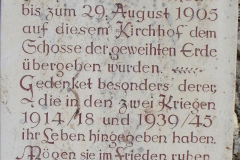 bis zum 29. August 1905
auf diesem Kirchhof dem
Schosse der geweihten Erde
übergeben wurden.
Gedenket besonders derer,
die in den zwei Kriegen
1914/18 und 1939/45
ihr Leben hingegeben haben.
Mögen sie im Frieden ruhen